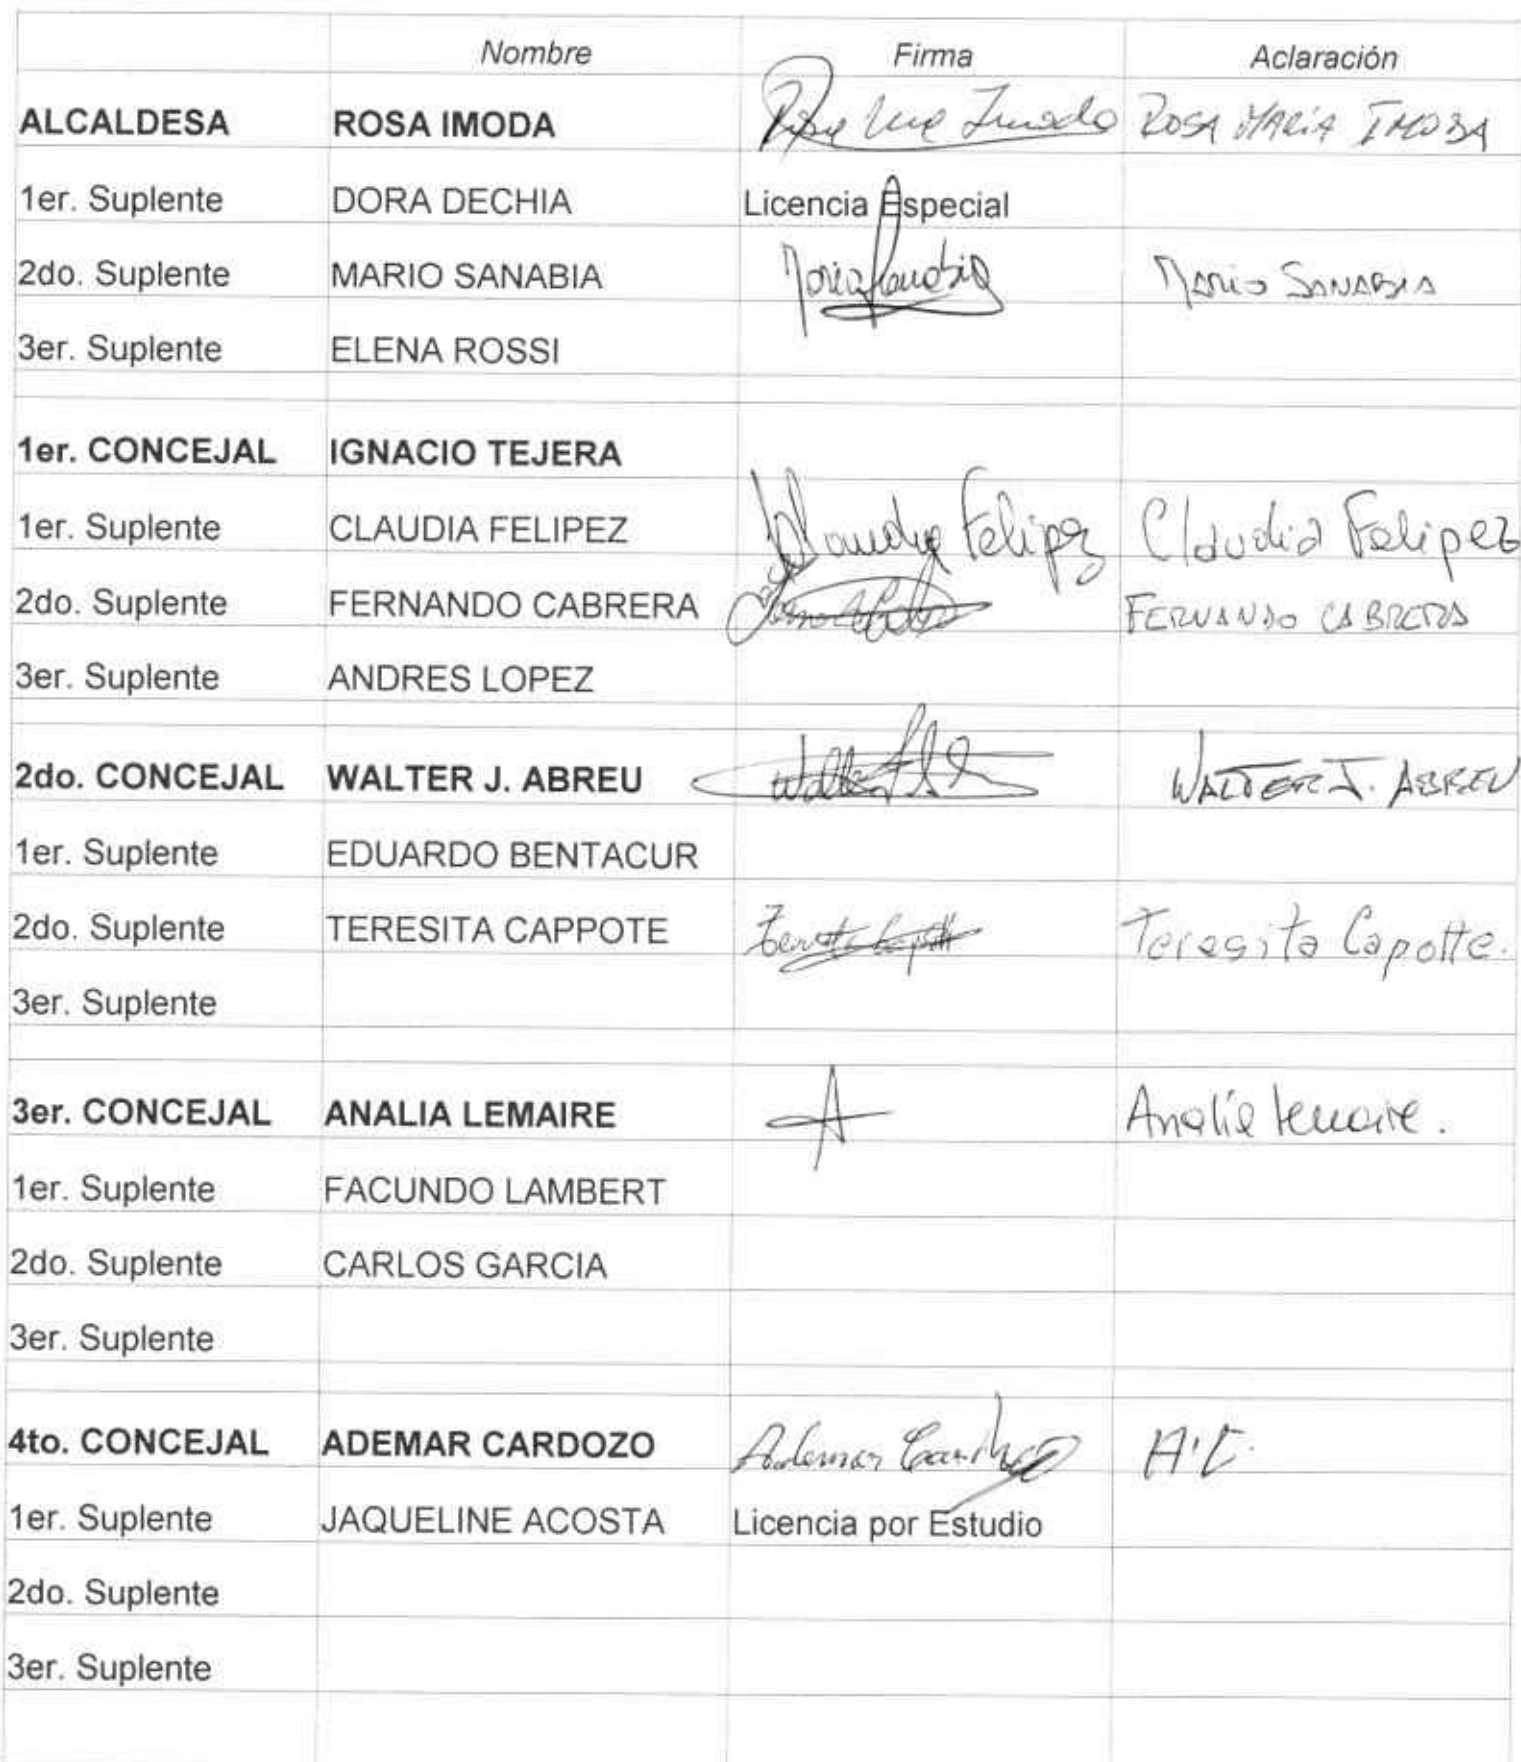 Nombre Firma Aclaración
ALCALDESA ROSA IMODA Rosa Imoda ROSA MARIA IMODA
1er. Suplente DORA DECHIA Licencia Especial
2do. Suplente MARIO SANABIA Mario Sanabia MARIO SANABIA
3er. Suplente ELENA ROSSI
1er. CONCEJAL IGNACIO TEJERA
1er. Suplente CLAUDIA FELIPEZ Claudia Felipez Claudia Felipez
2do. Suplente FERNANDO CABRERA FERNANDO CABRERA
3er. Suplente ANDRES LOPEZ
2do. CONCEJAL WALTER J. ABREU Walter WALTER J. ABREU
1er. Suplente EDUARDO BENTACUR
2do. Suplente TERESITA CAPPOTE Teresita Capotte.
3er. Suplente
3er. CONCEJAL ANALIA LEMAIRE A Analía Lemaire.
1er. Suplente FACUNDO LAMBERT
2do. Suplente CARLOS GARCIA
3er. Suplente
4to. CONCEJAL ADEMAR CARDOZO Ademar Cardozo A.C.
1er. Suplente JAQUELINE ACOSTA Licencia por Estudio
2do. Suplente
3er. Suplente